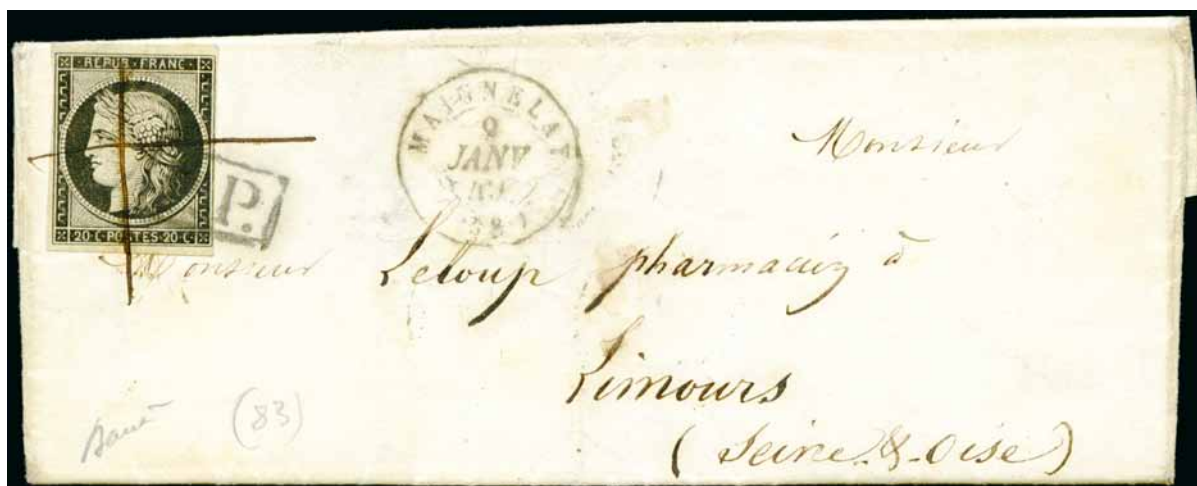 REPUB · FRANC ·
20 C · POSTES · 20 C ·
P.
MAIGNELAY
9
JANV
Monsieur
Monsieur Leloup pharmacien à
Limours
(Seine & Oise)
(83)